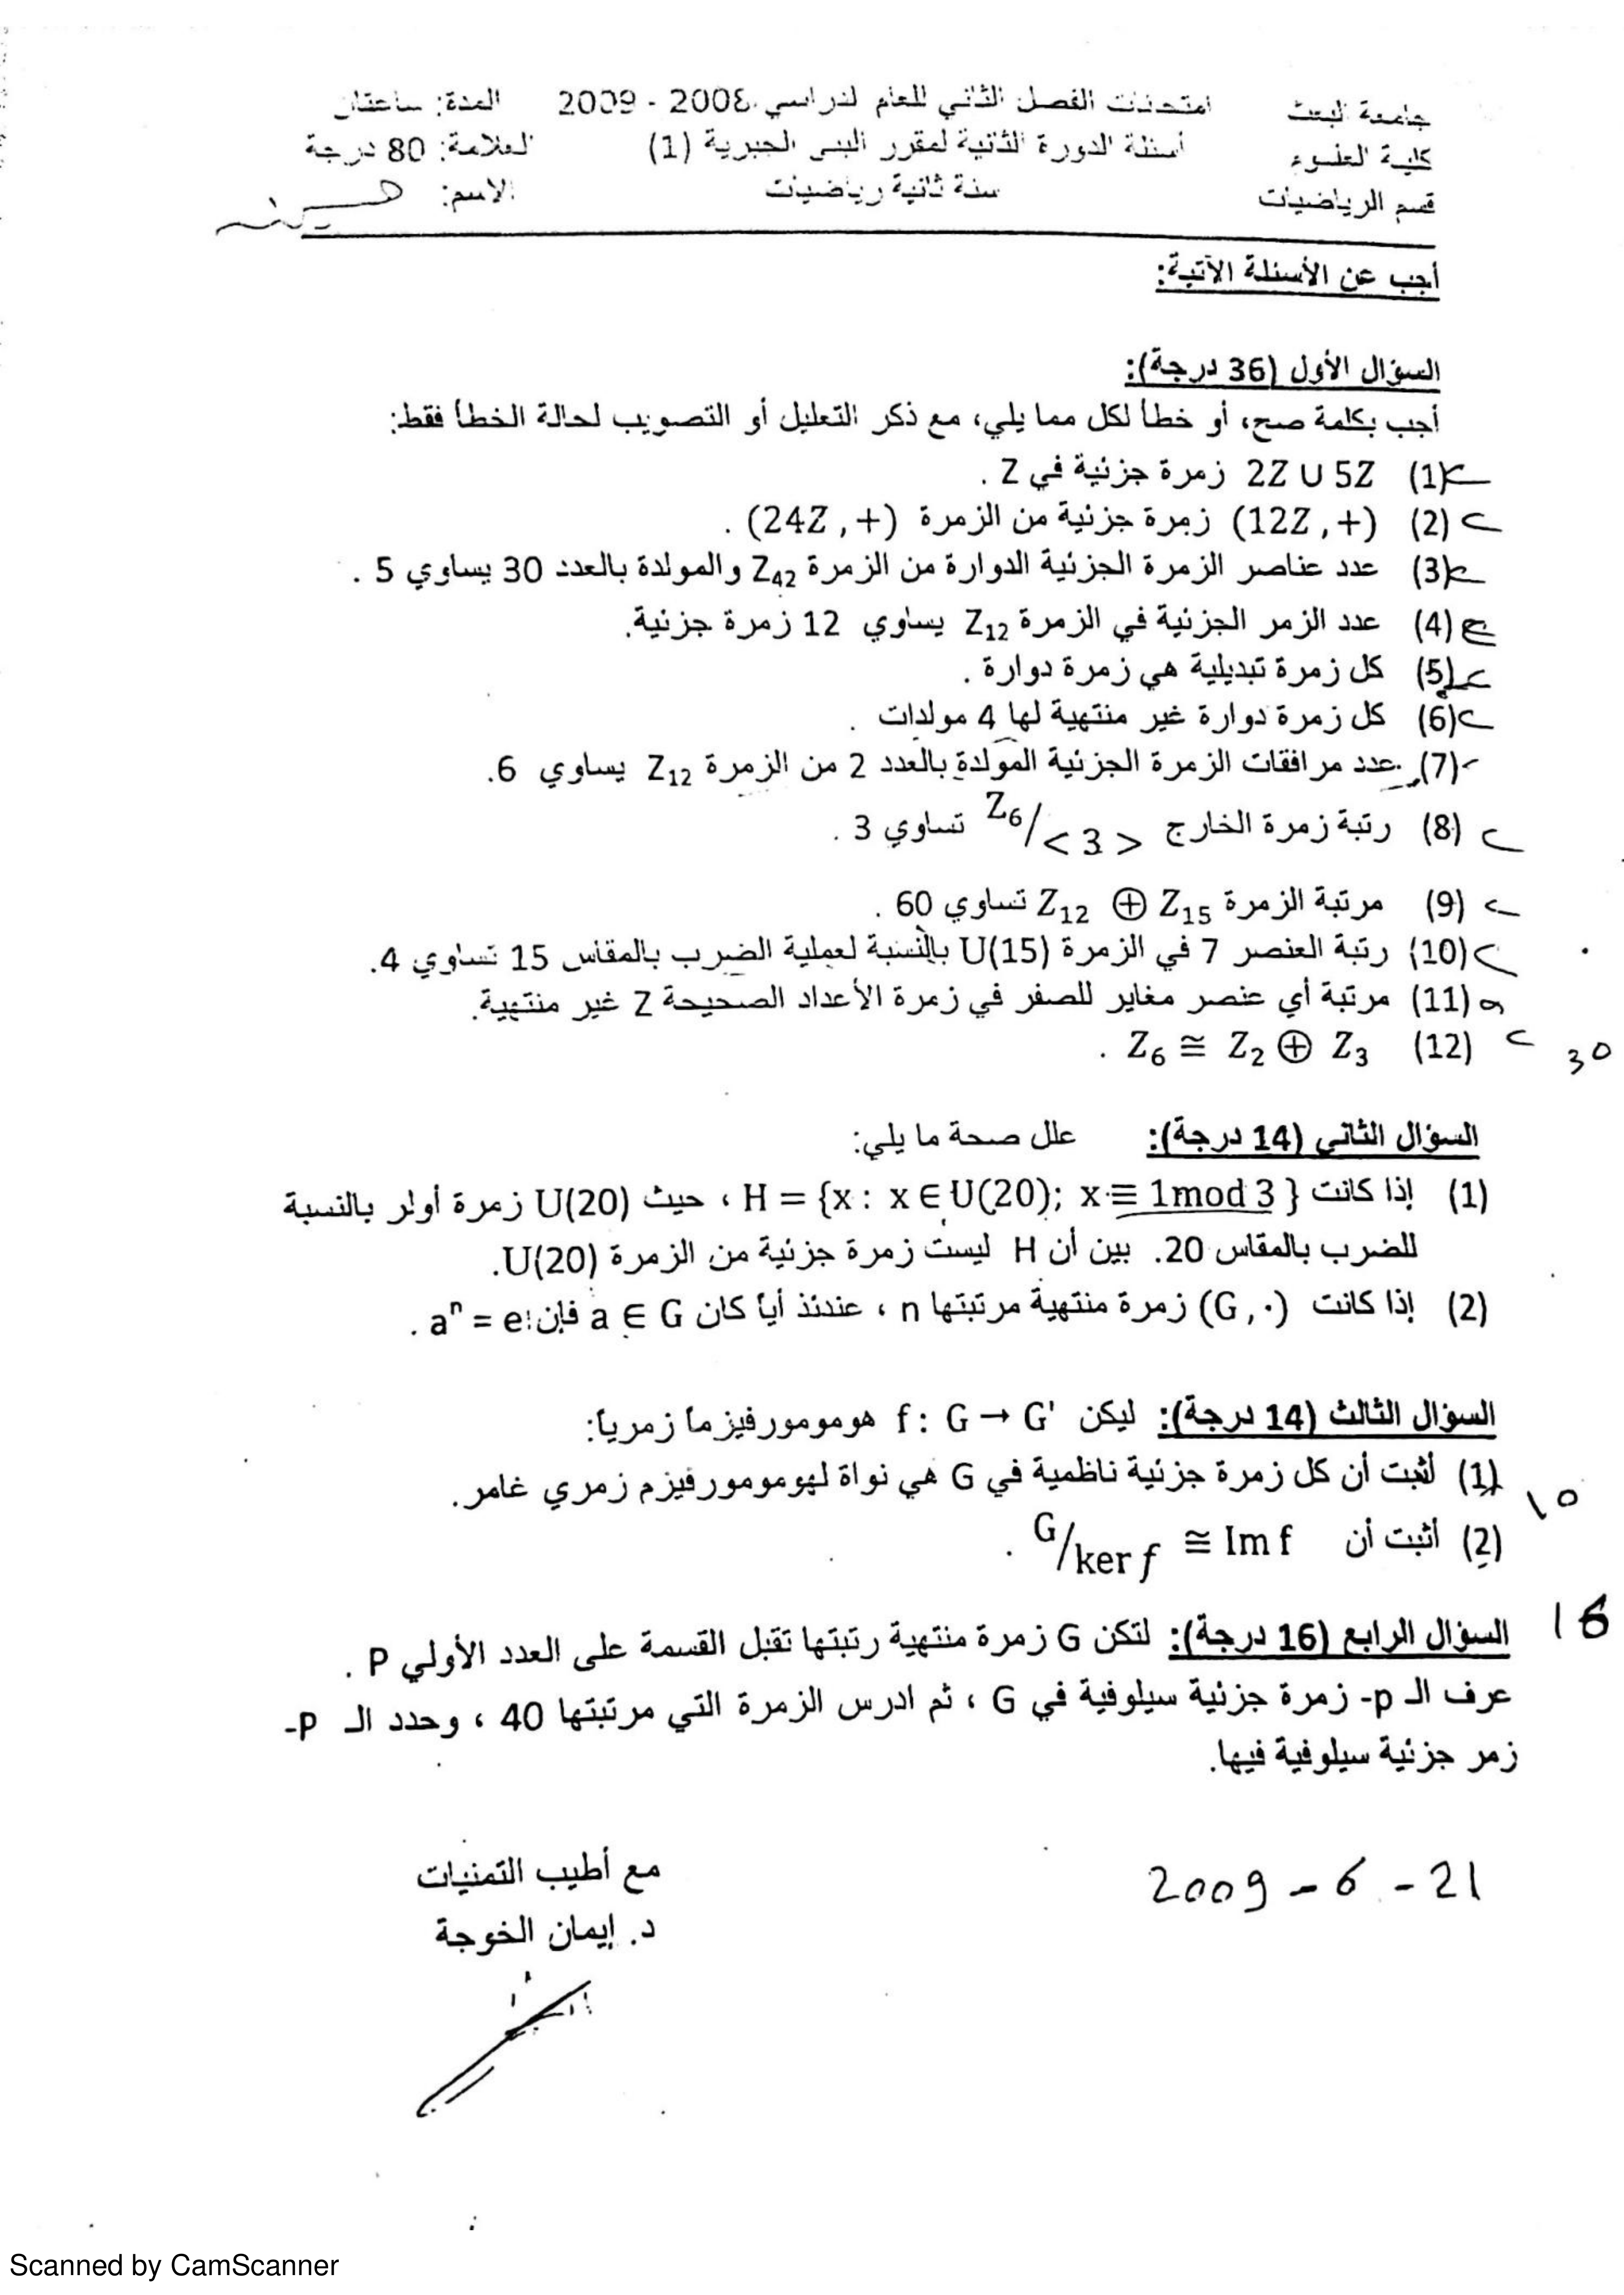 جامعة البعث
كلية العلوم
قسم الرياضيات
امتحانات الفصل الثاني للعام الدراسي 2008 - 2009
أسئلة الدورة الثانية لمقرر البنى الجبرية (1)
سنة ثانية رياضيات
المدة: ساعتان
العلامة: 80 درجة
الاسم:
أجب عن الأسئلة الآتية:
السؤال الأول (36 درجة):
أجب بكلمة صح، أو خطأ لكل مما يلي، مع ذكر التعليل أو التصويب لحالة الخطأ فقط:
(1) 2Z ∪ 5Z زمرة جزئية في Z .
(2) (12Z , +) زمرة جزئية من الزمرة (24Z , +) .
(3) عدد عناصر الزمرة الجزئية الدوارة من الزمرة Z₄₂ والمولدة بالعدد 30 يساوي 5 .
(4) عدد الزمر الجزئية في الزمرة Z₁₂ يساوي 12 زمرة جزئية.
(5) كل زمرة تبديلية هي زمرة دوارة .
(6) كل زمرة دوارة غير منتهية لها 4 مولدات .
(7) عدد مرافقات الزمرة الجزئية المولدة بالعدد 2 من الزمرة Z₁₂ يساوي 6.
(8) رتبة زمرة الخارج Z₆/< 3 > تساوي 3 .
(9) مرتبة الزمرة Z₁₂ ⊕ Z₁₅ تساوي 60 .
(10) رتبة العنصر 7 في الزمرة U(15) بالنسبة لعملية الضرب بالمقاس 15 تساوي 4.
(11) مرتبة أي عنصر مغاير للصفر في زمرة الأعداد الصحيحة Z غير منتهية.
(12) Z₆ ≅ Z₂ ⊕ Z₃ .
30
السؤال الثاني (14 درجة): علل صحة ما يلي:
(1) إذا كانت H = {x : x ∈ U(20); x ≡ 1mod 3 } ، حيث U(20) زمرة أولر بالنسبة
للضرب بالمقاس 20. بين أن H ليست زمرة جزئية من الزمرة U(20).
(2) إذا كانت (G , ·) زمرة منتهية مرتبتها n ، عندئذ أياً كان a ∈ G فإن: aⁿ = e .
السؤال الثالث (14 درجة): ليكن f : G → G' هومومورفيزما زمرياً:
(1) أثبت أن كل زمرة جزئية ناظمية في G هي نواة لهومومورفيزم زمري غامر.
10
(2) أثبت أن G/ker f ≅ Im f .
16
السؤال الرابع (16 درجة): لتكن G زمرة منتهية رتبتها تقبل القسمة على العدد الأولي P .
عرف الـ p- زمرة جزئية سيلوفية في G ، ثم ادرس الزمرة التي مرتبتها 40 ، وحدد الـ P-
زمر جزئية سيلوفية فيها.
2009 - 6 - 21
مع أطيب التمنيات
د. إيمان الخوجة
Scanned by CamScanner